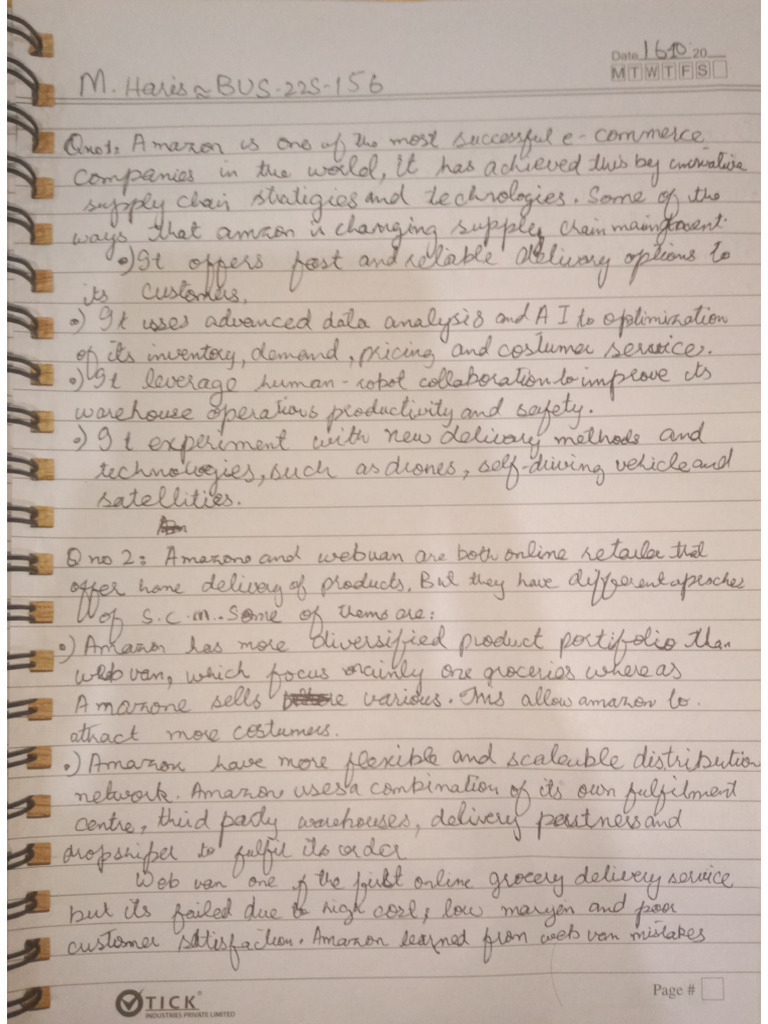 Date 16 10 20
M T W T F S
M. Haris ~ BUS-22S-156
Qno1: Amazon is one of the most successful e-commerce
companies in the world, It has achieved this by innvative
supply chain stratigies and technologies. Some of the
ways that amzon is changing supply chain
•) It offers fast and reliable delivery options to
its customers.
•) It uses advanced data analysis and AI to optimization
of its inventory, demand, pricing and costumer service.
•) It leverage human-robot collaboration to improve its
warehouse operations productivity and safety.
•) It experiment with new delivery methods and
technologies, such as drones, self-driving vehicle and
satellities.
Q no 2: Amazono and webvan are both online retailer that
offer home delivery of products. But they have different aproches
of S.C.M. Some of thems are:
•) Amazon has more diversified product portifolio than
web van, which focus mainly one groceries where as
Amazone sells various. This allow amazon to
attract more costumers.
•) Amazon have more flexible and scaleable distribution
network. Amazon uses a combination of its own fulfilment
centre, third party warehouses, delivery peartners and
dropshiper to fulfil its order
Web van one of the first online grocery delivery service
but its failed due to high cost, low margin and poor
customer satisfaction. Amazon learned from web van mistakes
TICK
INDUSTRIES PRIVATE LIMITED
Page #